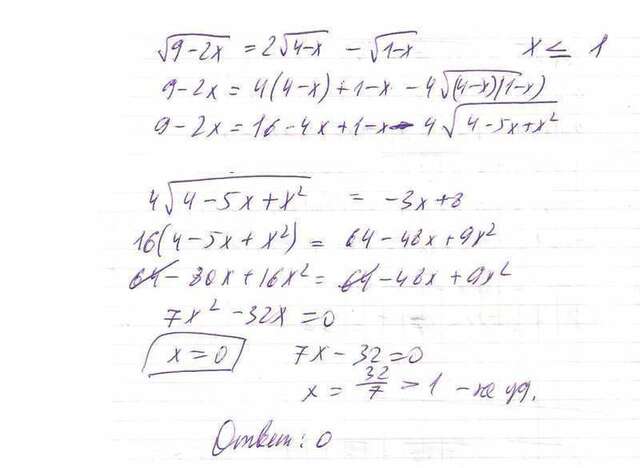 √(9-2x) = 2√(4-x) - √(1-x)    x ≤ 1
9-2x = 4(4-x)+1-x - 4√((4-x)(1-x))
9-2x = 16-4x+1-x - 4√(4-5x+x²)
4√(4-5x+x²) = -3x+8
16(4-5x+x²) = 64-48x+9x²
64-80x+16x² = 64-48x+9x²
7x²-32x=0
x=0    7x-32=0
x = 32/7 > 1 - не уд.
Ответ: 0